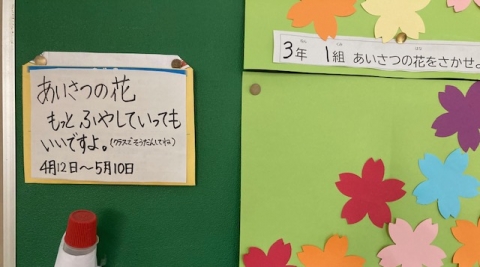 あいさつの花
もっとふやしていっても
いいですよ。(クラスでそうだんしてね)
4月12日～5月10日
3年 1組 あいさつの花をさかせよ